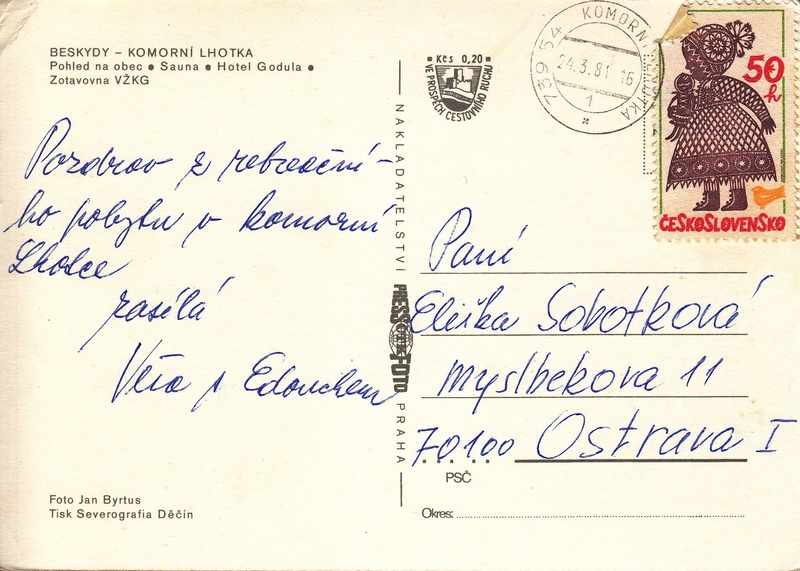 BESKYDY – KOMORNÍ LHOTKA
Pohled na obec ● Sauna ● Hotel Godula ●
Zotavovna VŽKG
Pozdrav z rekreační-
ho pobytu v komorní
Lhotce
zasílá
Věra s Edouchem
Foto Jan Byrtus
Tisk Severografia Děčín
NAKLADATELSTVÍ PRESSFOTO PRAHA
Kčs 0,20
VE PROSPĚCH CESTOVNÍHO RUCHU
739 54 KOMORNÍ LHOTKA
24.3.81 16
1
50
h
ČESKOSLOVENSKO
Paní
Eliška Sobotková
Myslbekova 11
70100 Ostrava I
PSČ
Okres: